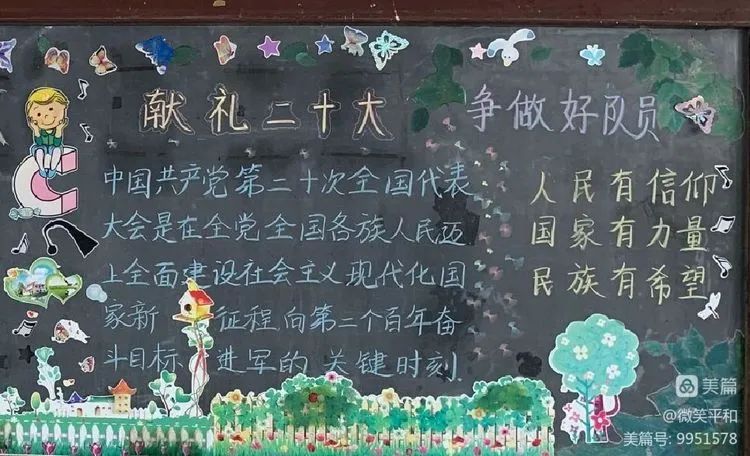 献礼二十大
中国共产党第二十次全国代表
大会是在全党全国各族人民迈
上全面建设社会主义现代化国
家新征程向第二个百年奋
斗目标进军的关键时刻.
争做好队员
人民有信仰
国家有力量
民族有希望
美篇
@微笑平和
美篇号: 9951578